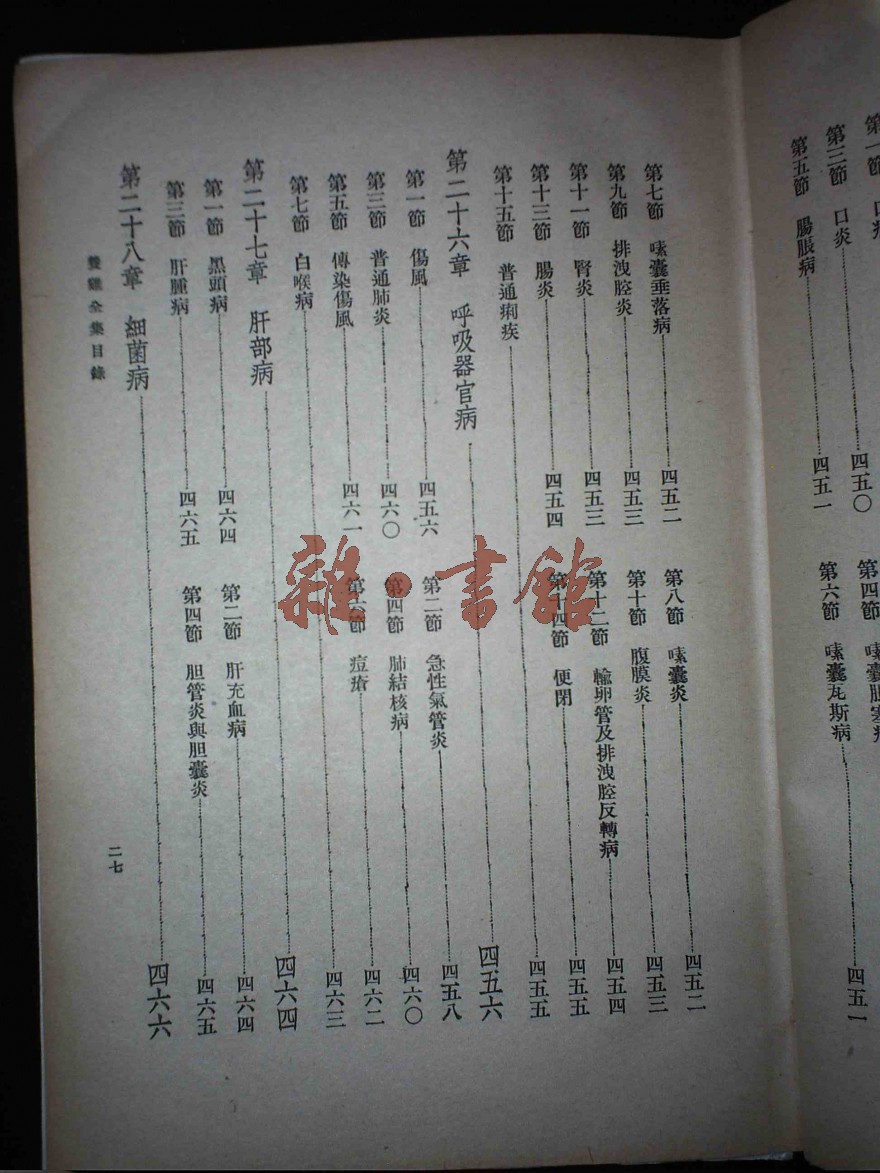 第一節
第三節 口炎……四五〇
第四節 嗉囊
第五節 腸脹病……四五一
第六節 嗉囊瓦斯病……四五一
第七節 嗉囊垂落病……四五二
第八節 嗉囊炎……四五二
第九節 排洩腔炎……四五三
第十節 腹膜炎……四五三
第十一節 腎炎……四五三
第十二節 輸卵管及排洩腔反轉病……四五四
第十三節 腸炎……四五四
第十四節 便閉……四五五
第十五節 普通痢疾……四五五
第二十六章 呼吸器官病……四五六
第一節 傷風……四五六
第二節 急性氣管炎……四五八
第三節 普通肺炎……四六〇
第四節 肺結核病……四六〇
第五節 傳染傷風……四六一
第六節 痘瘡……四六二
第七節 白喉病……四六三
第二十七章 肝部病……四六四
第一節 黑頭病……四六四
第二節 肝充血病……四六四
第三節 肝腫病……四六五
第四節 胆管炎與胆囊炎……四六五
第二十八章 細菌病……四六六
養雞全集目錄
二七
雜·書館